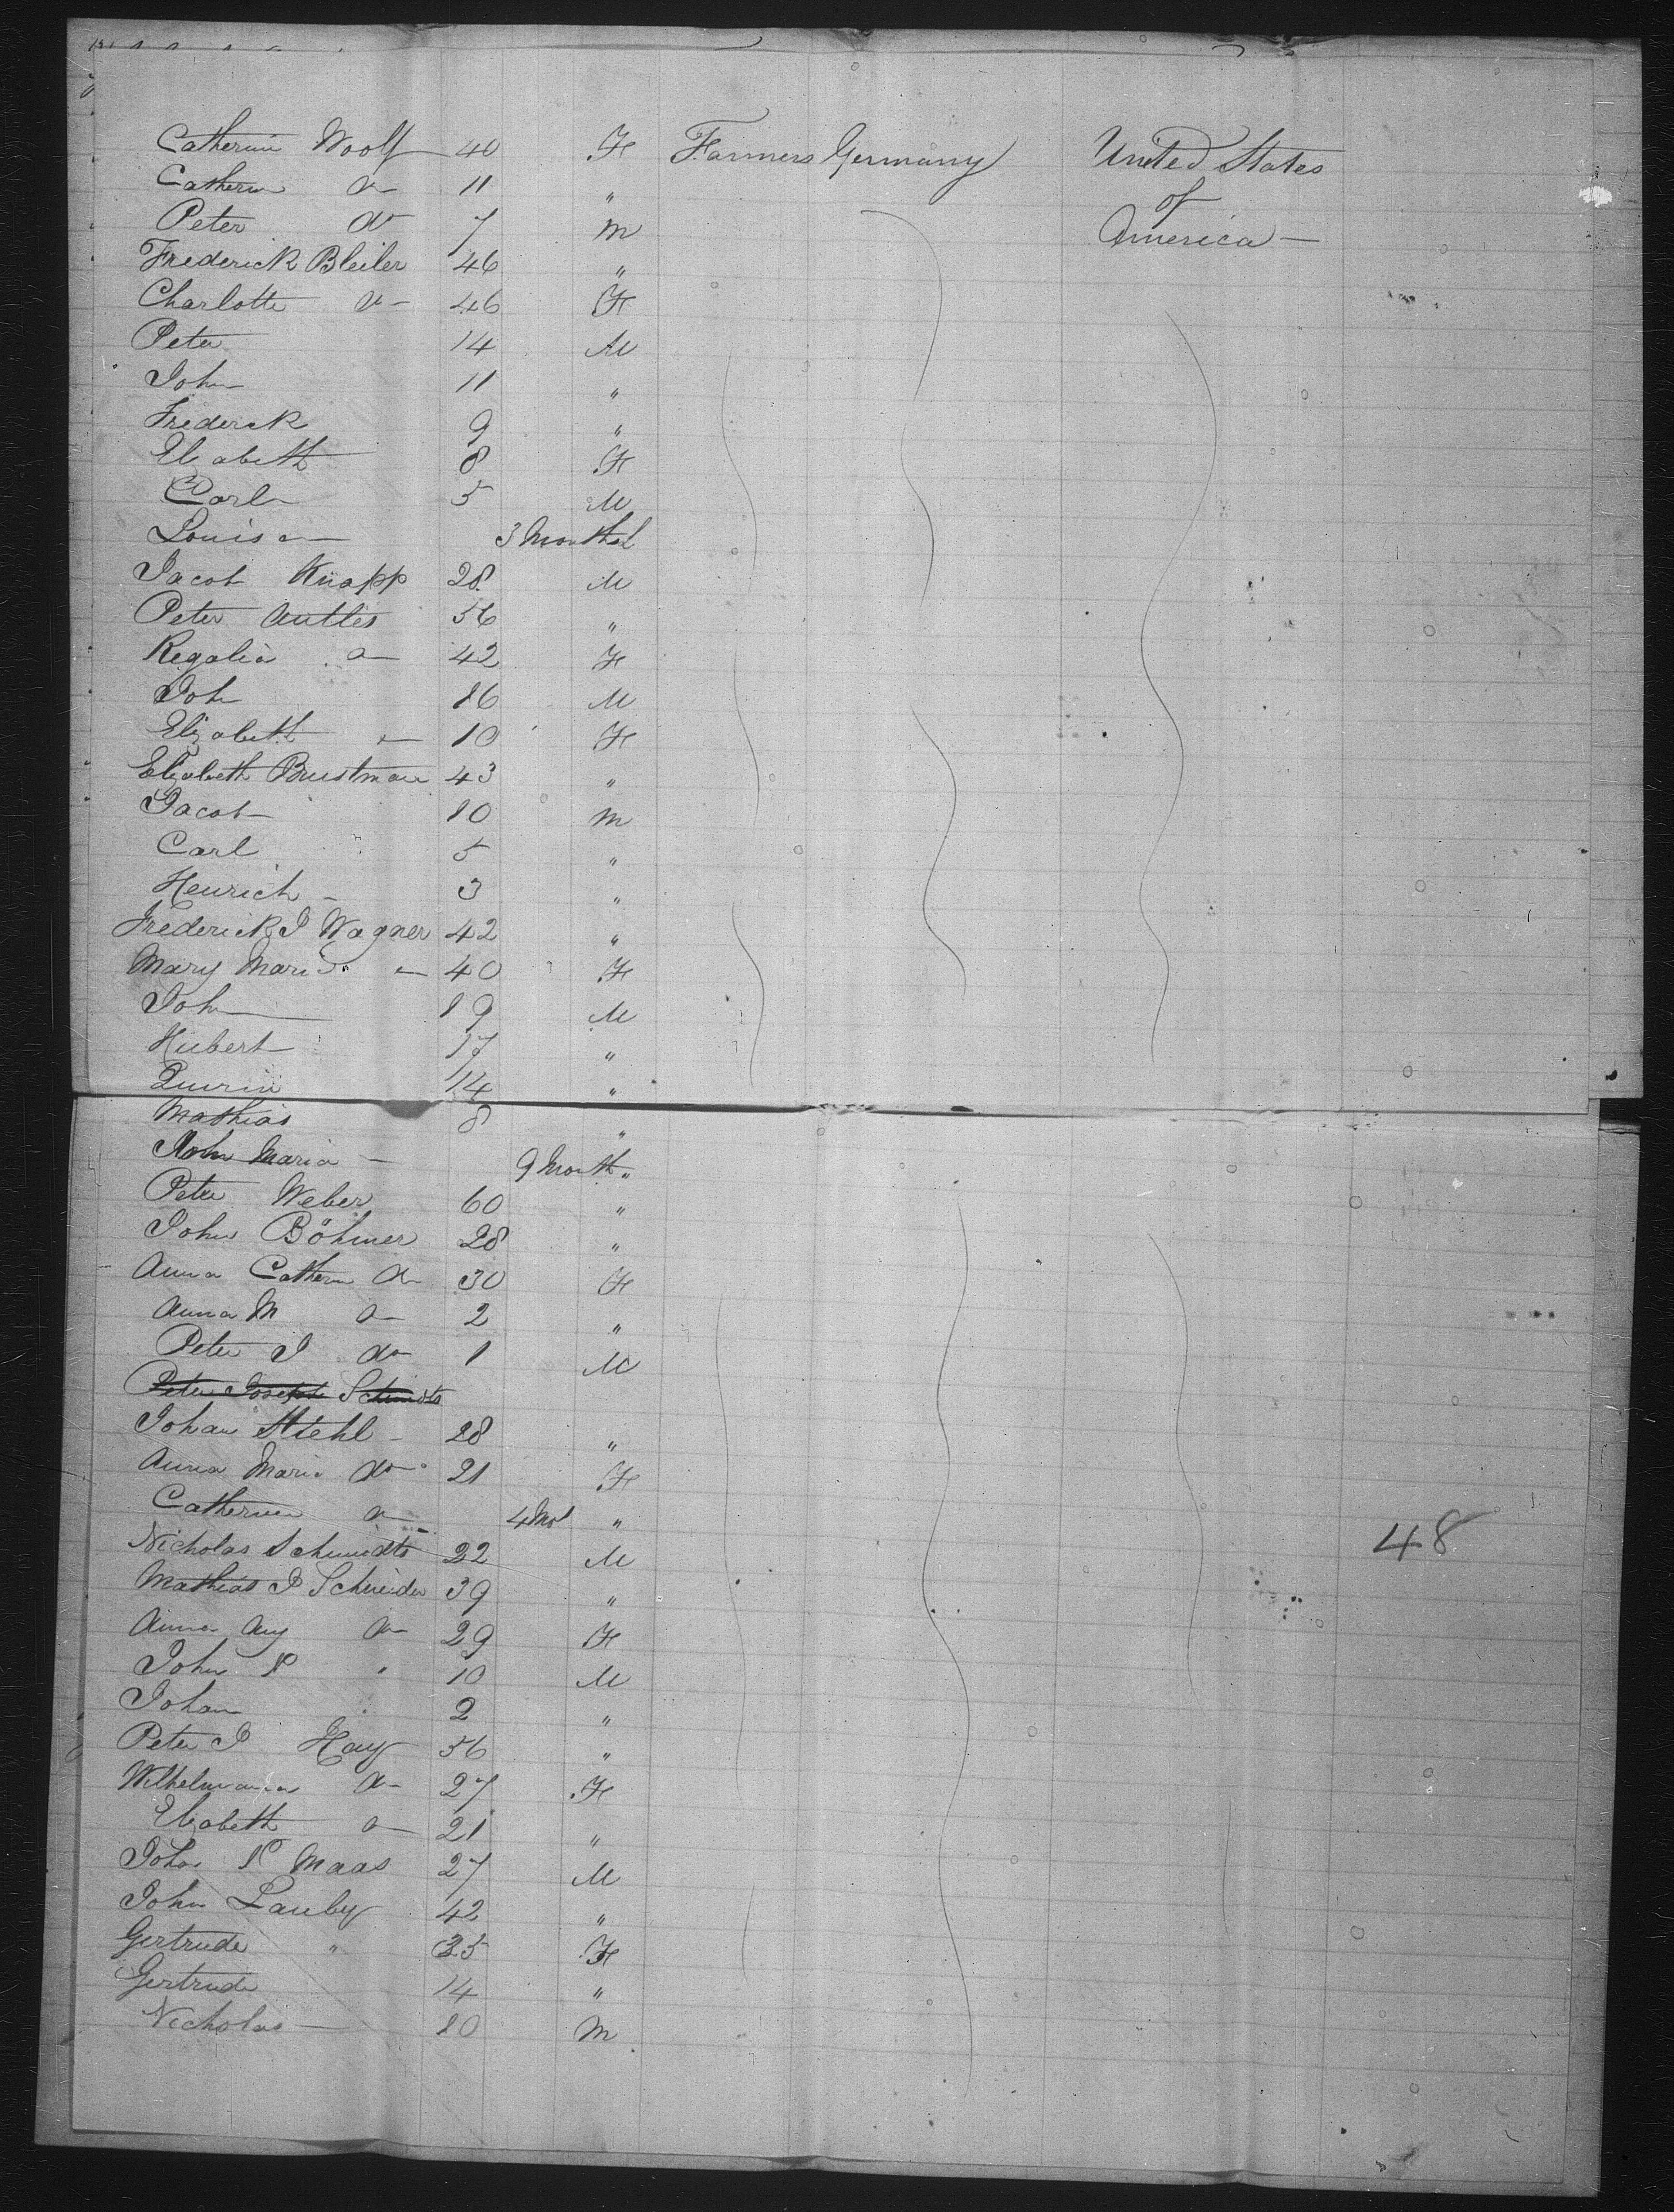 Catherine Woolf 40 F Farmers Germany United States
Catherin do 11 " of
Peter do 7 M America
Frederick Bleiler 46 "
Charlotte do 46 F
Peter 14 M
John 11 "
Frederick 9 "
Elisabeth 8 F
Carl 5 M
Louisa 3 Months
Jacob Knapp 28 M
Peter 56 "
Regalia do 42 F
Joh 16 M
Elizabeth 10 F
Elizabeth Brustman 43 "
Jacob 10 M
Carl 5 "
Henrich 3 "
Frederick J Wagner 42 "
Mary Maria 40 F
Joh 19 M
Hubert 17 "
Quirin 14 "
Mathias 8 "
John Maria 9 Month "
Peter Weber 60 "
John Böhmer 28 "
Anna Cathern do 30 F
Anna M do 2 "
Peter J do 1 M
Peter Joseph Schmidts
Johan Stehl 28 "
Anna Maria do 21 F
Catherine do 4 Mos "
Nicholas Schmidts 22 M 48
Mathias J Schneider 39 "
Anna Ang do 29 F
John P " 10 M
Johan 2 "
Peter J Hay 56 "
Wilhelmina do 27 F
Elizabeth do 21 "
John P Maas 27 M
John Lauby 42 "
Gertrude " 35 F
Gertrude 14 "
Nicholas 10 M